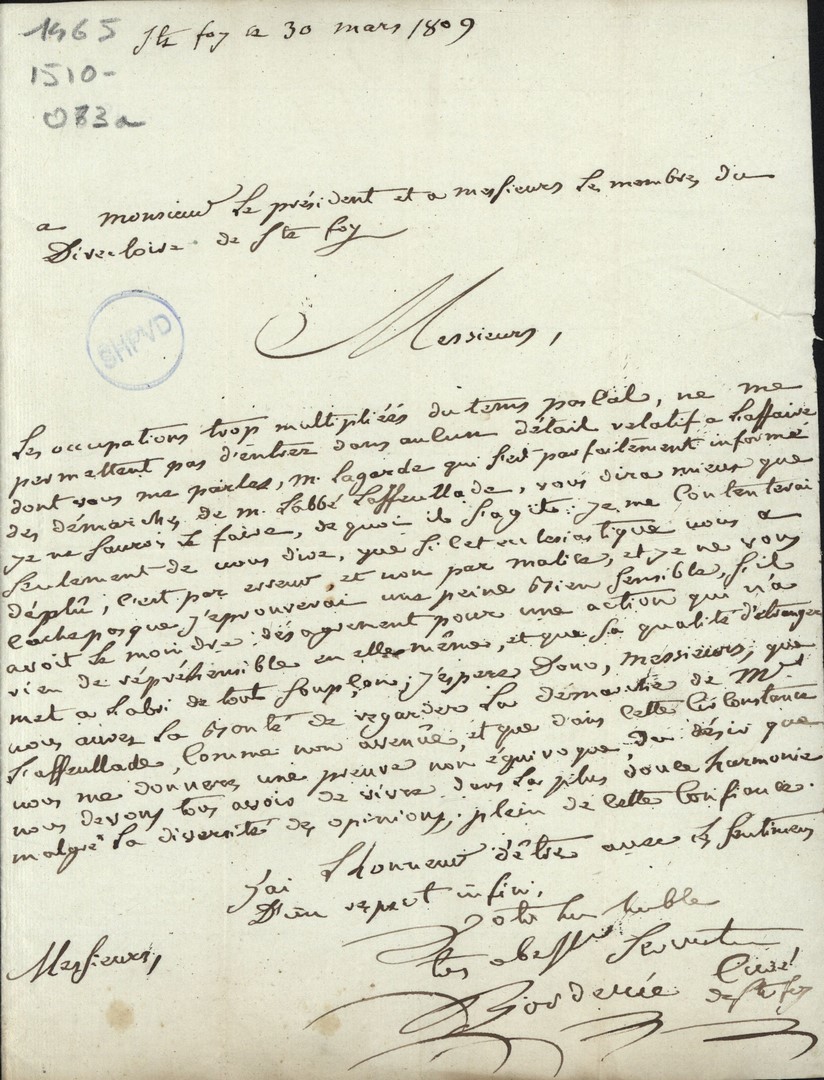 1965
1510-
083a
Ste foy ce 30 mars 1809
a monsieur Le président et a messieurs Les membres du
Directoire de Ste foy
SHPVD
Messieurs,
Les occupations trop multipliées du tems pascal, ne me
permettent pas d'entrer dans aucun détail relatif a L'affaire
dont vous me parlez, m. Lagarde qui s'est parfaitement informé
des démarches de m. L'abbé Laffeuillade, vous dira mieux que
je ne saurois le faire, de quoi il s'agit. je me Contenterai
seulement de vous dire, que si cet ecclesiastique vous a
déplû, c'est par erreur et non par malice, et je ne vous
cache pas que j'eprouverai une peine bien sensible, s'il
avoit le moindre désagrement pour une action qui n'a
rien de répréhensible en elle même, et que sa qualité d'etranger
met a L'abri de tout soupçon; j'espere Donc, messieurs, que
vous aurez La bonté de regarder La démarche de Mr
Laffeuillade, Comme non avenüe, et que dans cette circonstance
vous me donnerez une preuve non équivoque, du désir que
nous devons tous avoir de vivre dans La plus douce harmonie
malgré La diversité des opinions. plein de cette Confiance.
j'ai L'honneur d'être avec les sentimens
D'un respect infini,
Messieurs,
Votre humble
tres obeissant Serviteur
Borderie Curé
de Ste foy